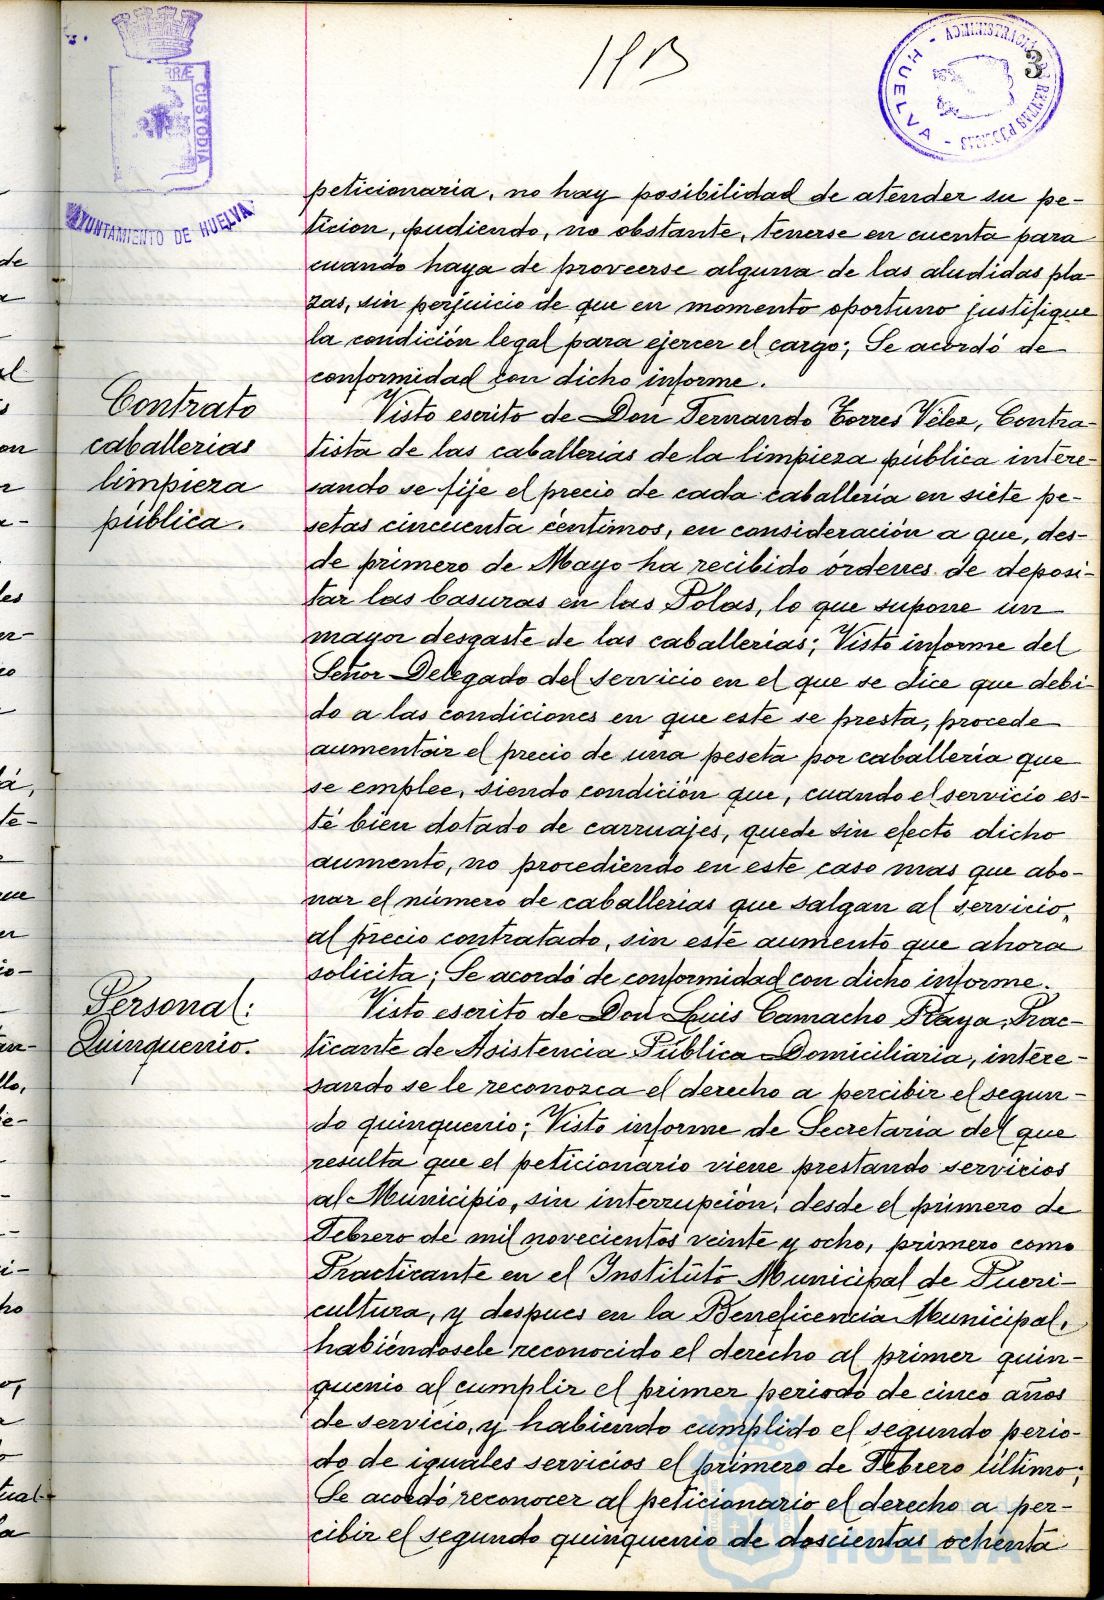 RRÆ
CUSTODIA
AYUNTAMIENTO DE HUELVA
ADMINISTRACIÓN DE RENTAS PÚBLICAS
- HUELVA -
3
peticionaria, no hay posibilidad de atender su pe-
ticion, pudiendo, no obstante, tenerse en cuenta para
cuando haya de proveerse alguna de las aludidas pla-
zas, sin perjuicio de que en momento oportuno justifique
la condición legal para ejercer el cargo; Se acordó de
conformidad con dicho informe.
Contrato
caballerias
limpieza
pública.
Visto escrito de Don Fernando Torres Vélez, Contra-
tista de las caballerías de la limpieza pública intere-
sando se fije el precio de cada caballería en siete pe-
setas cincuenta céntimos, en consideración a que, des-
de primero de Mayo ha recibido órdenes de deposi-
tar las basuras en las Polas, lo que supone un
mayor desgaste de las caballerías; Visto informe del
Señor Delegado del servicio en el que se dice que debi-
do a las condiciones en que este se presta, procede
aumentar el precio de una peseta por caballería que
se emplee, siendo condición que, cuando el servicio es-
té bien dotado de carruajes, quede sin efecto dicho
aumento, no procediendo en este caso mas que abo-
nar el número de caballerias que salgan al servicio,
al precio contratado, sin este aumento que ahora
solicita; Se acordó de conformidad con dicho informe.
Personal:
Quinquenio.
Visto escrito de Don Luis Camacho Raya, Prac-
ticante de Asistencia Pública Domiciliaria, intere-
sando se le reconozca el derecho a percibir el segun-
do quinquenio; Visto informe de Secretaría del que
resulta que el peticionario viene prestando servicios
al Municipio, sin interrupción, desde el primero de
Febrero de mil novecientos veinte y ocho, primero como
Practicante en el Instituto Municipal de Pueri-
cultura, y despues en la Beneficencia Municipal,
habiéndosele reconocido el derecho al primer quin-
quenio al cumplir el primer periodo de cinco años
de servicio, y habiendo cumplido el segundo perio-
do de iguales servicios el primero de Febrero último;
Se acordó reconocer al peticionario el derecho a per-
cibir el segundo quinquenio de doscientas ochenta
HUELVA